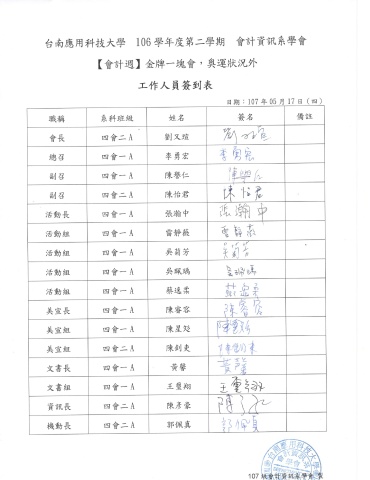 台南應用科技大學 106 學年度第二學期 會計資訊系學會
【會計週】金牌一塊會，奧運狀況外
工作人員簽到表
日期：107 年 05 月 17 日（四）
職稱 系科班級 姓名 簽名 備註
會長 四會二A 劉又瑄 劉又瑄
總召 四會一A 李勇宏 李勇宏
副召 四會一A 陳譽仁 陳譽仁
副召 四會二A 陳怡君 陳怡君
活動長 四會一A 張瀚中 張瀚中
活動組 四會一A 雷靜薇 雷靜薇
活動組 四會一A 吳菊芳 吳菊芳
活動組 四會一A 吳珮瑀 吳珮瑀
活動組 四會一A 蔡逸柔 蔡逸柔
美宣長 四會一A 陳睿容 陳睿容
美宣組 四會一A 陳星彣
美宣組 四會二A 陳劊吏
文書長 四會一A 黃馨 黃馨
文書組 四會二A 王璽翔
資訊長 四會二A 陳彥豪
機動長 四會二A 郭佩真 郭佩真
107 級會計資訊系學會 製